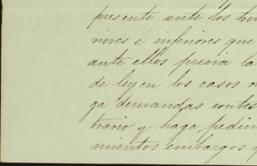 presente ante los tri
riores é inferiores que
ante ellos previa la
de ley en los casos
ga demandas contes
trario y haga pedim
mientos embargos